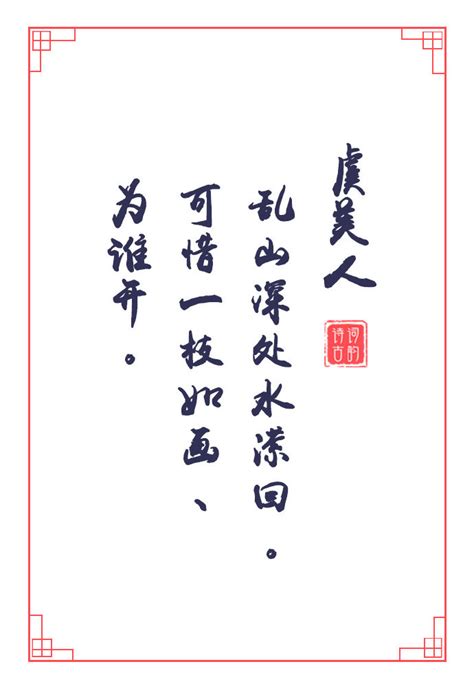 虞美人
诗词古韵
乱山深处水潆回。
可惜一枝如画、
为谁开。